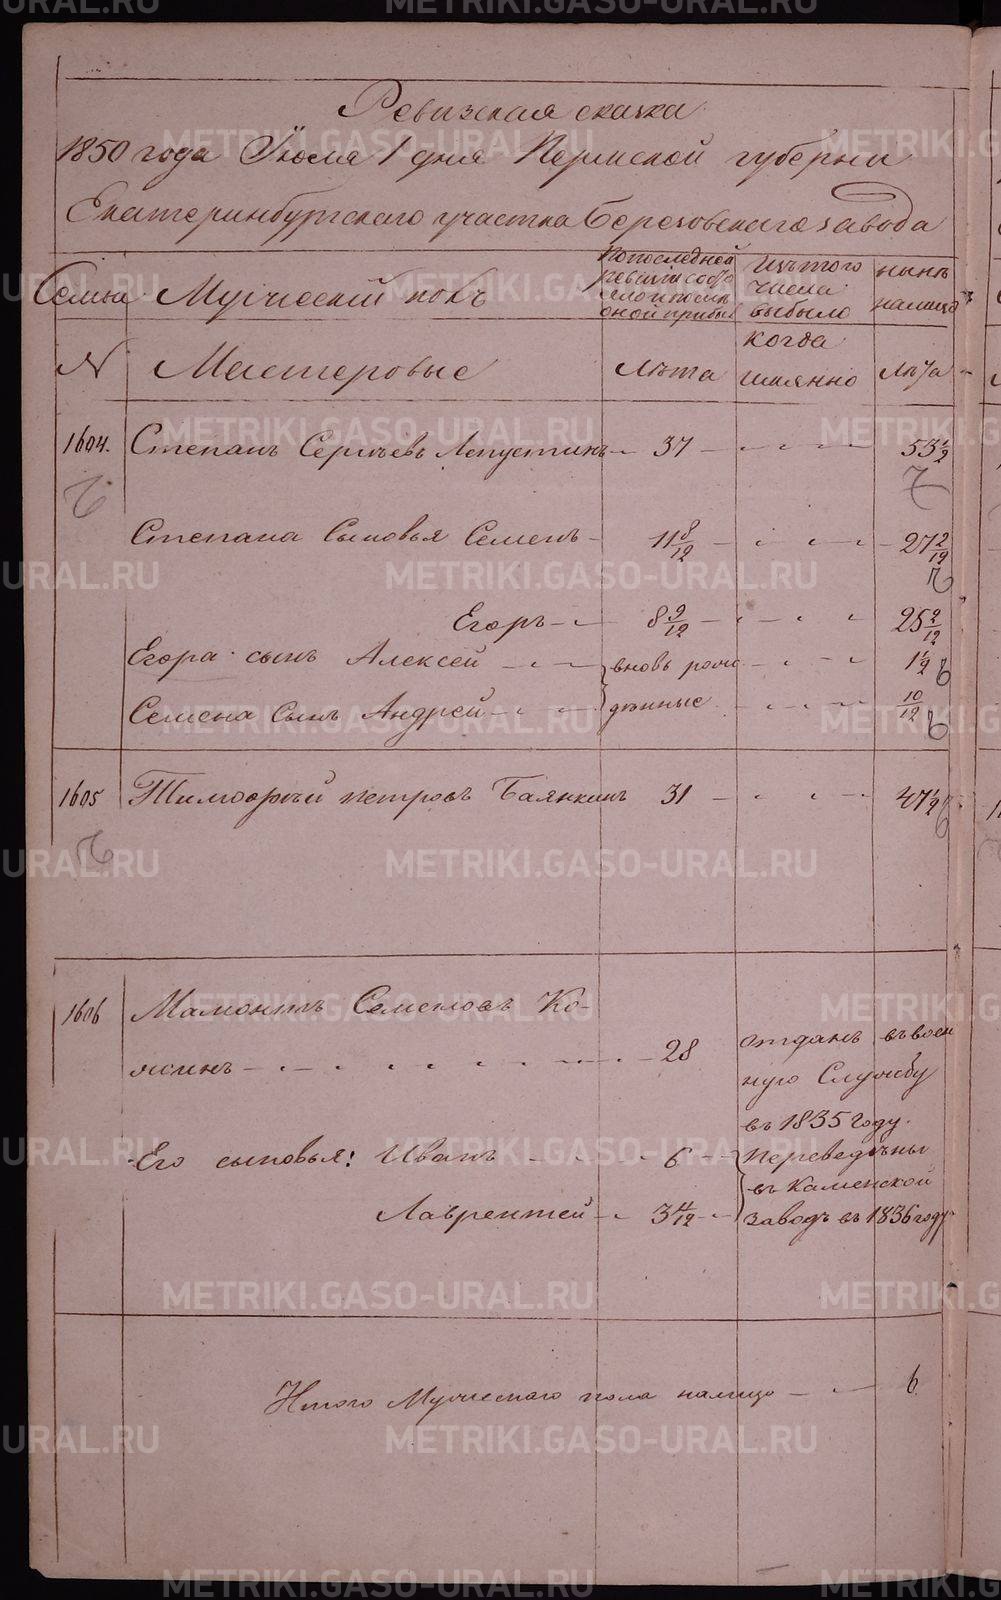 Ревизская сказка
1850 года Июля 1 дня Пермской губернии
Екатеринбургского участка Березовского завода
Семьи Мужеский полъ
По последней ревизии состояло и после оной прибыло
Изъ того числа выбыло
нынѣ налицо
№ Мастеровые
Лѣта
когда имянно
Лѣта
1604. Степанъ Сергѣевъ Лепустинъ 37 53 1/2
Степана Сыновья Семенъ 11 8/12 27 2/12
Егоръ 8 9/12 25 2/12
Егора сынъ Алексей вновь рож- 1 1/2
Семена Сынъ Андрей денные 10/12
1605 Тимофей Петровъ Баянкинъ 31 47 1/2
1606 Мамонтъ Семеновъ Ко-
жинъ 28 отданъ въ воен
ную Службу
въ 1835 году.
Его сыновья: Иванъ 6 Переведены
въ Каменской
Лаврентей 3 4/12 заводъ въ 1836 году
Итого Мужескаго пола налицо 6
METRIKI.GASO-URAL.RU